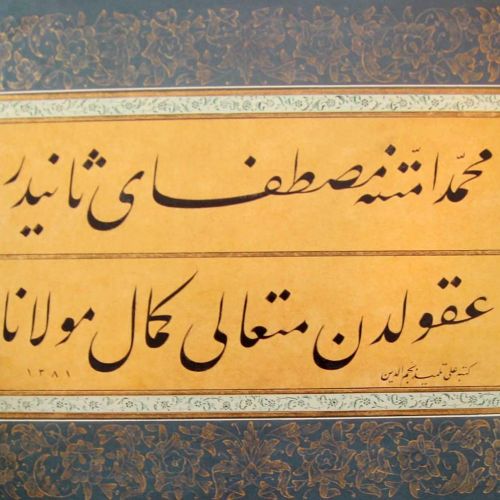 محمّد امّتنه مصطفای ثانیدر
عقولدن متعالی کمال مولانا
کتبه علی تلمیذ نجم الدین
١٣٨١